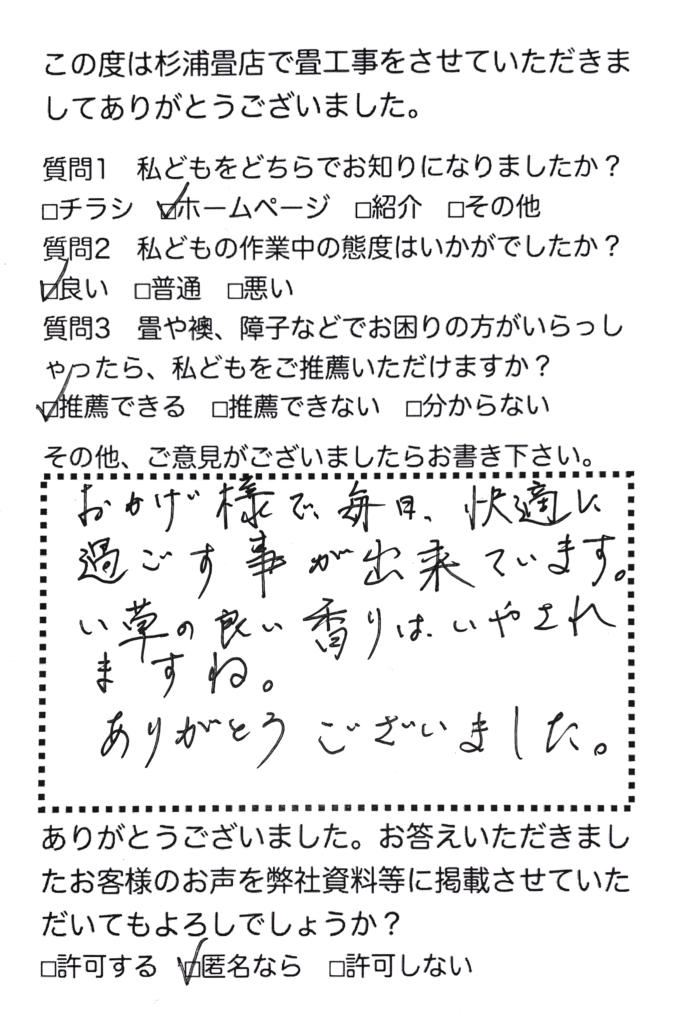 この度は杉浦畳店で畳工事をさせていただきま
してありがとうございました。
質問1　私どもをどちらでお知りになりましたか？
□チラシ　☑ホームページ　□紹介　□その他
質問2　私どもの作業中の態度はいかがでしたか？
☑良い　□普通　□悪い
質問3　畳や襖、障子などでお困りの方がいらっし
ゃったら、私どもをご推薦いただけますか？
☑推薦できる　□推薦できない　□分からない
その他、ご意見がございましたらお書き下さい。
おかげ様で、毎日、快適に
過ごす事が出来ています。
い草の良い香りは、いやされ
ますね。
ありがとうございました。
ありがとうございました。お答えいただきまし
たお客様のお声を弊社資料等に掲載させていた
だいてもよろしでしょうか？
□許可する　☑匿名なら　□許可しない